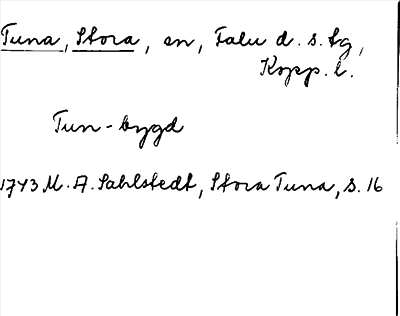 Tuna, Stora, sn, Falu d. s. tg,
Kopp. l.
Tun-bygd
1743 M. A. Sahlstedt, Stora Tuna, s. 16